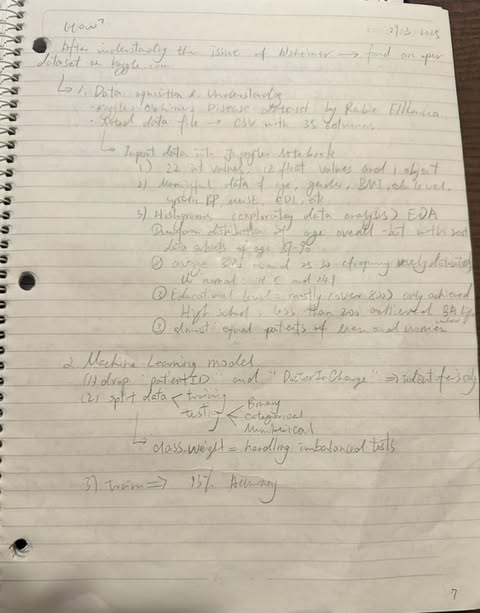 How?
29.3.2025
After understanding the issue of Alzheimer → find an open
dataset on kaggle.com
↳ 1. Data acquisition & Understanding
- kaggle, Alzheimer's Disease Dataset by Rabie El Kharoua
data file → CSV with 35 columns
↳ Input data into Jupyter Notebook
1) 22 int values, 12 float values and 1 object
2) data of age, gender, BMI, edu level,
systolic BP, ADL, etc
3) Histograms (exploratory data analysis) EDA
distribution of age overall - but with most
data subsets of age 87-90
② average BMI
normal
③ Educational level = mostly (over 800) only achieved
High school, less than 200 achieved
③ almost equal patients of men and women
2. Machine Learning model
(1) drop "patient ID" and "Doctor In Charge" ⇒
(2) split data < training
testing < Binary
categorical
Numerical
↳ class_weight = handling imbalanced tests
3) train ⇒ 93% Accuracy
7